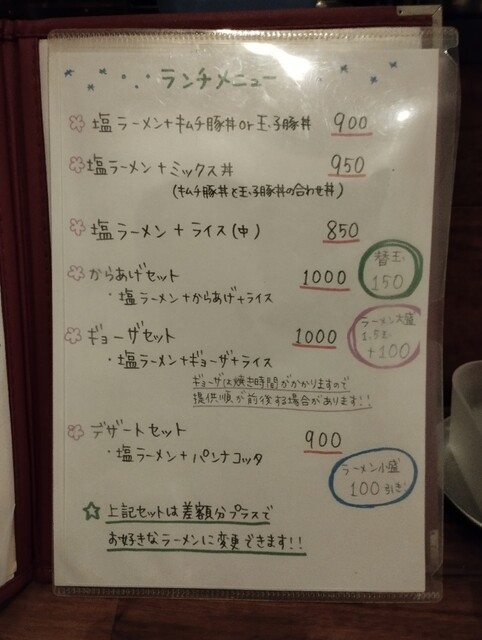 ランチメニュー
塩ラーメン+キムチ豚丼or玉子豚丼 900
塩ラーメン+ミックス丼 950
(キムチ豚丼と玉子豚丼の合わせ丼)
塩ラーメン+ライス(中) 850
替玉
150
からあげセット 1000
・塩ラーメン+からあげ+ライス
ラーメン大盛
1.5玉
+100
ギョーザセット 1000
・塩ラーメン+ギョーザ+ライス
ギョーザは焼き時間がかかりますので
提供順が前後する場合があります!!
デザートセット 900
・塩ラーメン+パンナコッタ
ラーメン小盛
100引き
上記セットは差額分プラスで
お好きなラーメンに変更できます!!